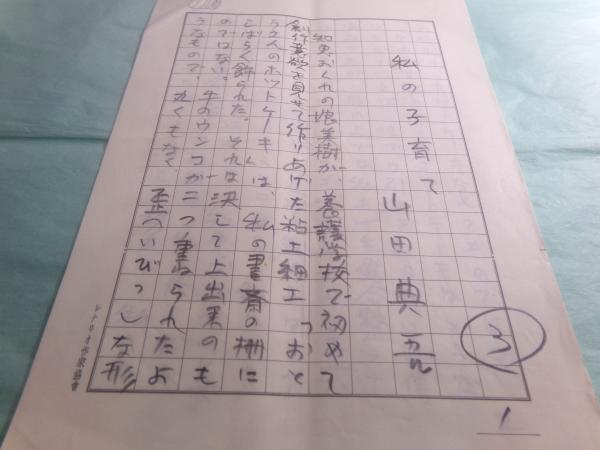 3
1
私の子育て
山田典吾
知恵おくれの娘美樹が、養護学校で初めて
創作意欲を見せて作りあげた粘土細工「おと
う人のホットケーキ」は、私の書斎の棚に
しばらく飾られた。それは決して上出来のも
のではない。牛のウンコが二つ重ねられたよ
うなもので、丸くもなく、歪ついびつな形
シナリオ作家協会